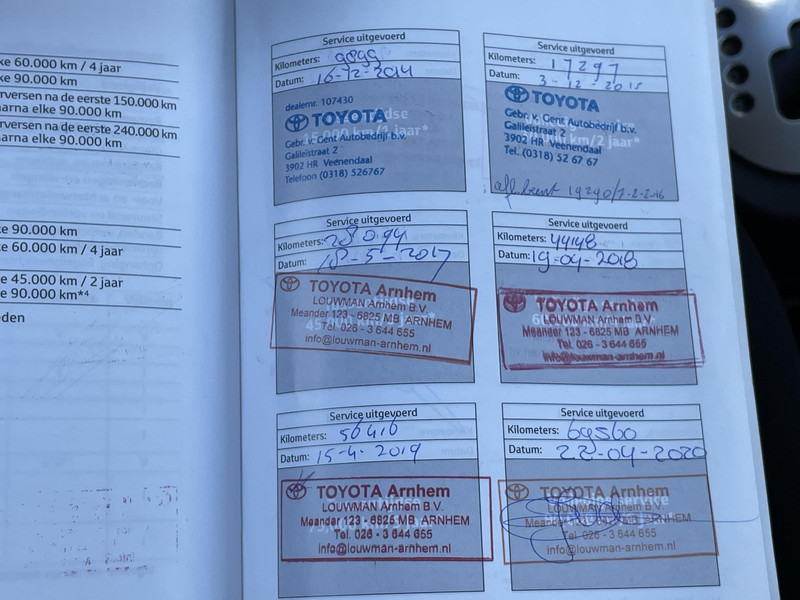 ke 60.000 km / 4 jaar
ke 90.000 km
erversen na de eerste 150.000 km
aarna elke 90.000 km
rversen na de eerste 240.000 km
aarna elke 90.000 km
ke 90.000 km
ke 60.000 km / 4 jaar
e 45.000 km / 2 jaar
e 90.000 km*4
eden
Service uitgevoerd
Kilometers: 9899
Datum: 16-12-2014
dealernr. 107430
TOYOTA
Gebr. v. Gent Autobedrijf b.v.
Galileistraat 2
3902 HR Veenendaal
Telefoon (0318) 526767
Service uitgevoerd
Kilometers: 17297
Datum: 3-12-2015
TOYOTA
Gebr. v. Gent Autobedrijf b.v.
Galileistraat 2
3902 HR Veenendaal
km/2 jaar*
Tel. (0318) 52 67 67
Service uitgevoerd
Kilometers: 28094
Datum: 18-5-2017
TOYOTA Arnhem
LOUWMAN Arnhem B.V.
Meander 123 - 6825 MB ARNHEM
Tel. 026 - 3 644 655
info@louwman-arnhem.nl
Service uitgevoerd
Kilometers: 44148
Datum: 19-04-2018
TOYOTA Arnhem
LOUWMAN Arnhem B.V.
Meander 123 - 6825 MB ARNHEM
Tel. 026 - 3 644 655
info@louwman-arnhem.nl
Service uitgevoerd
Kilometers: 56416
Datum: 15-4-2019
TOYOTA Arnhem
LOUWMAN Arnhem B.V.
Meander 123 - 6825 MB ARNHEM
Tel. 026 - 3 644 655
info@louwman-arnhem.nl
Service uitgevoerd
Kilometers: 69560
Datum: 22-04-2020
TOYOTA Arnhem
LOUWMAN Arnhem B.V.
Meander 123 ARNHEM
Tel. 026 - 3 644 655
info@louwman-arnhem.nl